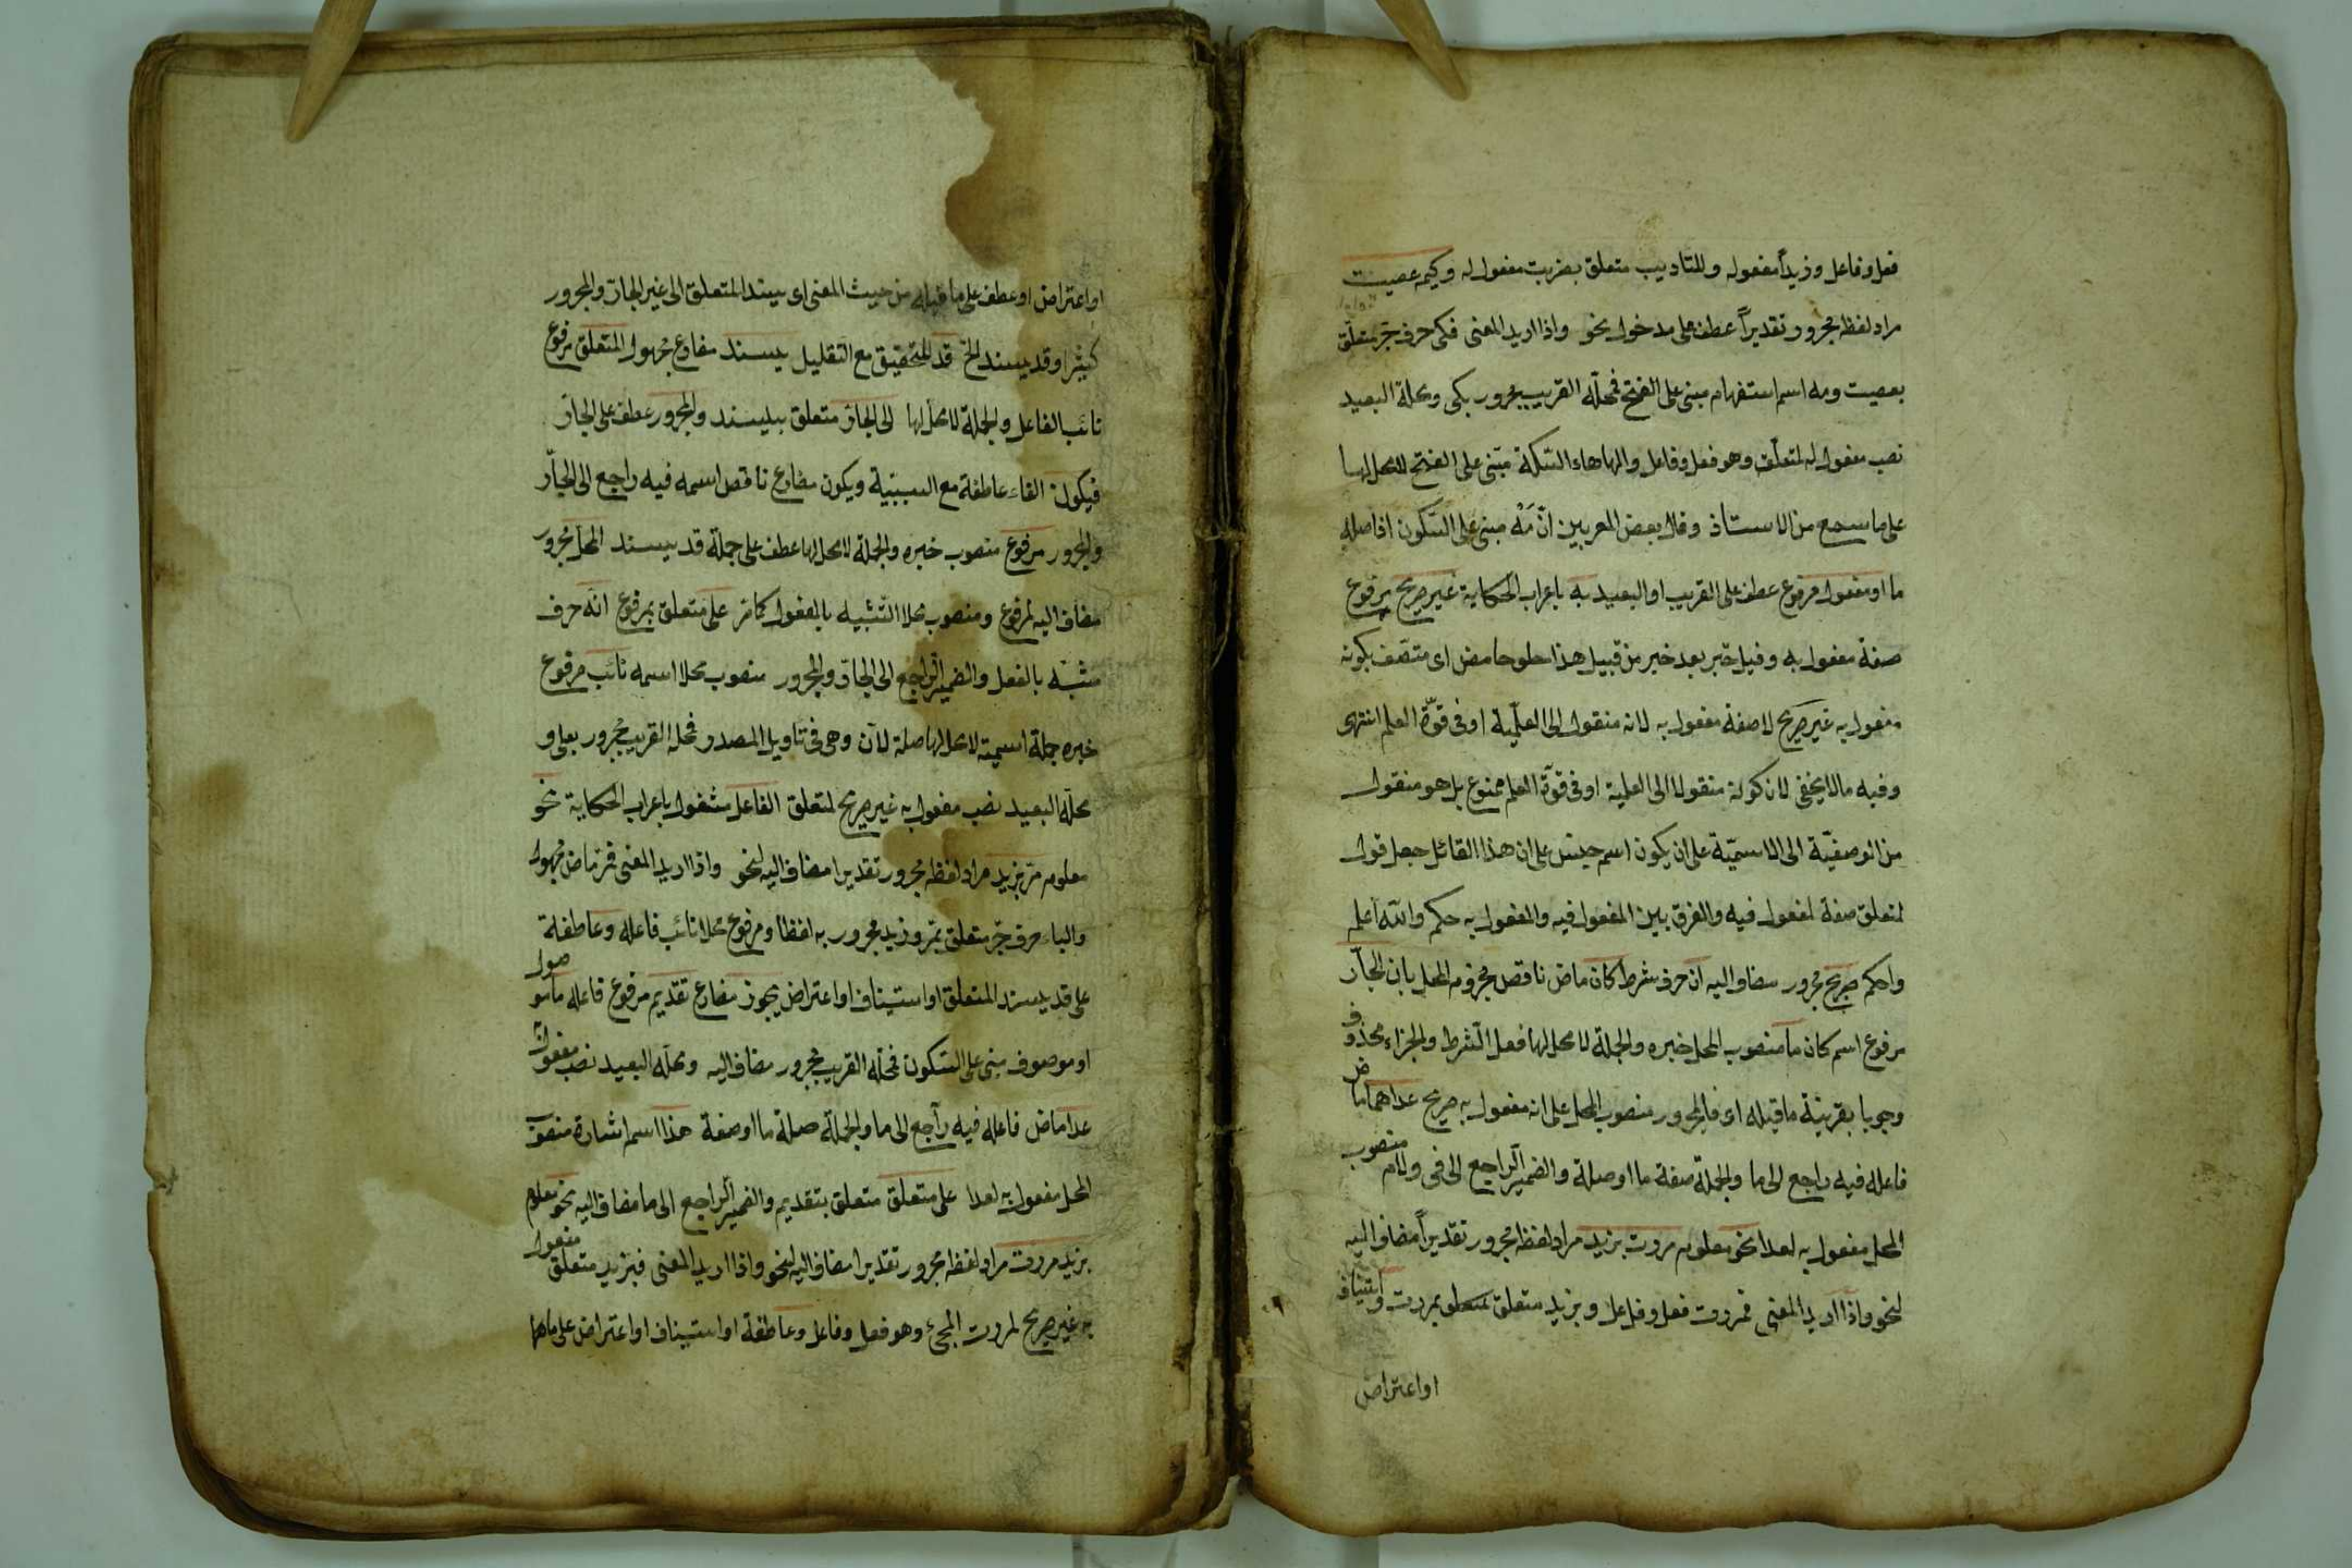 فعل وفاعل وزيداً مفعوله وللتاديب متعلق بضربت مفعول له وكيمه عصيت
مراد لفظه مجرور تقديراً عطف على مدخول نحو واذا اريد المعنى فكى حرف جرّ متعلق
بعصيت ومه اسم استفهام مبنى على الفتح فمحلّه القريب مجرور بكى ومحلّه البعيد
نصب مفعول له لمتعلّقه وهو فعل وفاعل والهاء هاء السّكتة مبنى على الفتح لا محل لها
على ما سمع من الاستاذ وقال بعض المعربين انّ مَهْ مبنى على السّكون اذ اصله
ما او مفعول مرفوع عطف على القريب او البعيد به باعراب الحكاية غير صريح مرفوع
صفة مفعول به وقيل خبر بعد خبر من قبيل هذا حلو حامض اى متصف بكونه
مفعول به غير صريح لا صفة مفعول به لانه منقول الى العلميّة او فى قوّة العلم انتهى
وفيه ما لا يخفى لان كونه منقولا الى العلمية او فى قوّة العلم ممنوع بل هو منقول
من الوصفيّة الى الاسميّة على ان يكون اسم جنس على ان هذا القائل جعل قول
لمتعلق صفة لمفعول فيه والفرق بين المفعول فيه والمفعول به حكم والله اعلم
واحكم صريح مجرور مضاف اليه ان حرف شرط كان ماض ناقص مجزوم المحل بان الجارّ
مرفوع اسم كان ما منصوب المحل خبره والجملة لا محل لها فعل الشرط والجزاء محذوف
وجوبا بقرينة ما قبله اى فالمجرور منصوب المحل على انه مفعول به صريح عداهما ماض
فاعله فيه راجع الى ما والجملة صفة ما او صلة والضمير الراجع الى فى ولام منصوب
المحل مفعول به لعدا نحو معلوم مررت بزيد مراد لفظه مجرور تقديراً مضاف اليه
لنحو واذا اريد المعنى فمررت فعل وفاعل وبزيد متعلق بمررت و استيناف
او اعتراض
او اعتراض او عطف على ما قبله من حيث المعنى اى يسند المتعلق الى غير الجارّ والمجرور
كثيرا وقد يسند الخ قد للتحقيق مع التقليل يسند مضارع مجهول المتعلق مرفوع
نائب الفاعل والجملة لا محل لها الى الجارّ متعلق بيسند والمجرور عطف على الجارّ
فيكون الفاء عاطفة مع السببيّة ويكون مضارع ناقص اسمه فيه راجع الى الجارّ
والمجرور مرفوع منصوب خبره والجملة لا محل لها عطف على جملة قد يسند المحل مجرور
مضاف اليه لمرفوع ومنصوب محلا التشبيه بالمفعول كما مرّ على متعلق بمرفوع انّه حرف
مشبّه بالفعل والضمير الراجع الى الجارّ والمجرور منصوب محلا اسمه نائب مرفوع
خبره جملة اسمية لا محل لها صلة لانّ وهى فى تاويل المصدر فمحله القريب مجرور بعلى و
محلّه البعيد نصب مفعول به غير صريح لمتعلق الفاعل مشغول باعراب الحكاية نحو
معلوم مرّ بزيد مراد لفظه مجرور تقديرا مضاف اليه لنحو واذا اريد المعنى فمرّ ماض مجهول
والباء حرف جرّ متعلق بمرّ وزيد مجرور به لفظا ومرفوع محلا نائب فاعله وعاطفة
على قد يسند المتعلق او استيناف او اعتراض يجوز مضارع تقديم مرفوع فاعله ما موصول
او موصوف مبنى على السّكون فمحلّه القريب مجرور مضاف اليه ومحلّه البعيد نصب مفعوله
عدا ماض فاعله فيه راجع الى ما والجملة صلة ما او صفة هذا اسم اشارة منصوب
المحل مفعول به لعدا على متعلق متعلق بتقديم والضمير الراجع الى ما مضاف اليه نحو معلوم
بزيد مررت مراد لفظه مجرور تقديرا مضاف اليه لنحو واذا اريد المعنى فبزيد متعلق مفعول
به غير صريح لمررت المجئ وهو فعل وفاعل وعاطفة او استيناف او اعتراض على ما هما